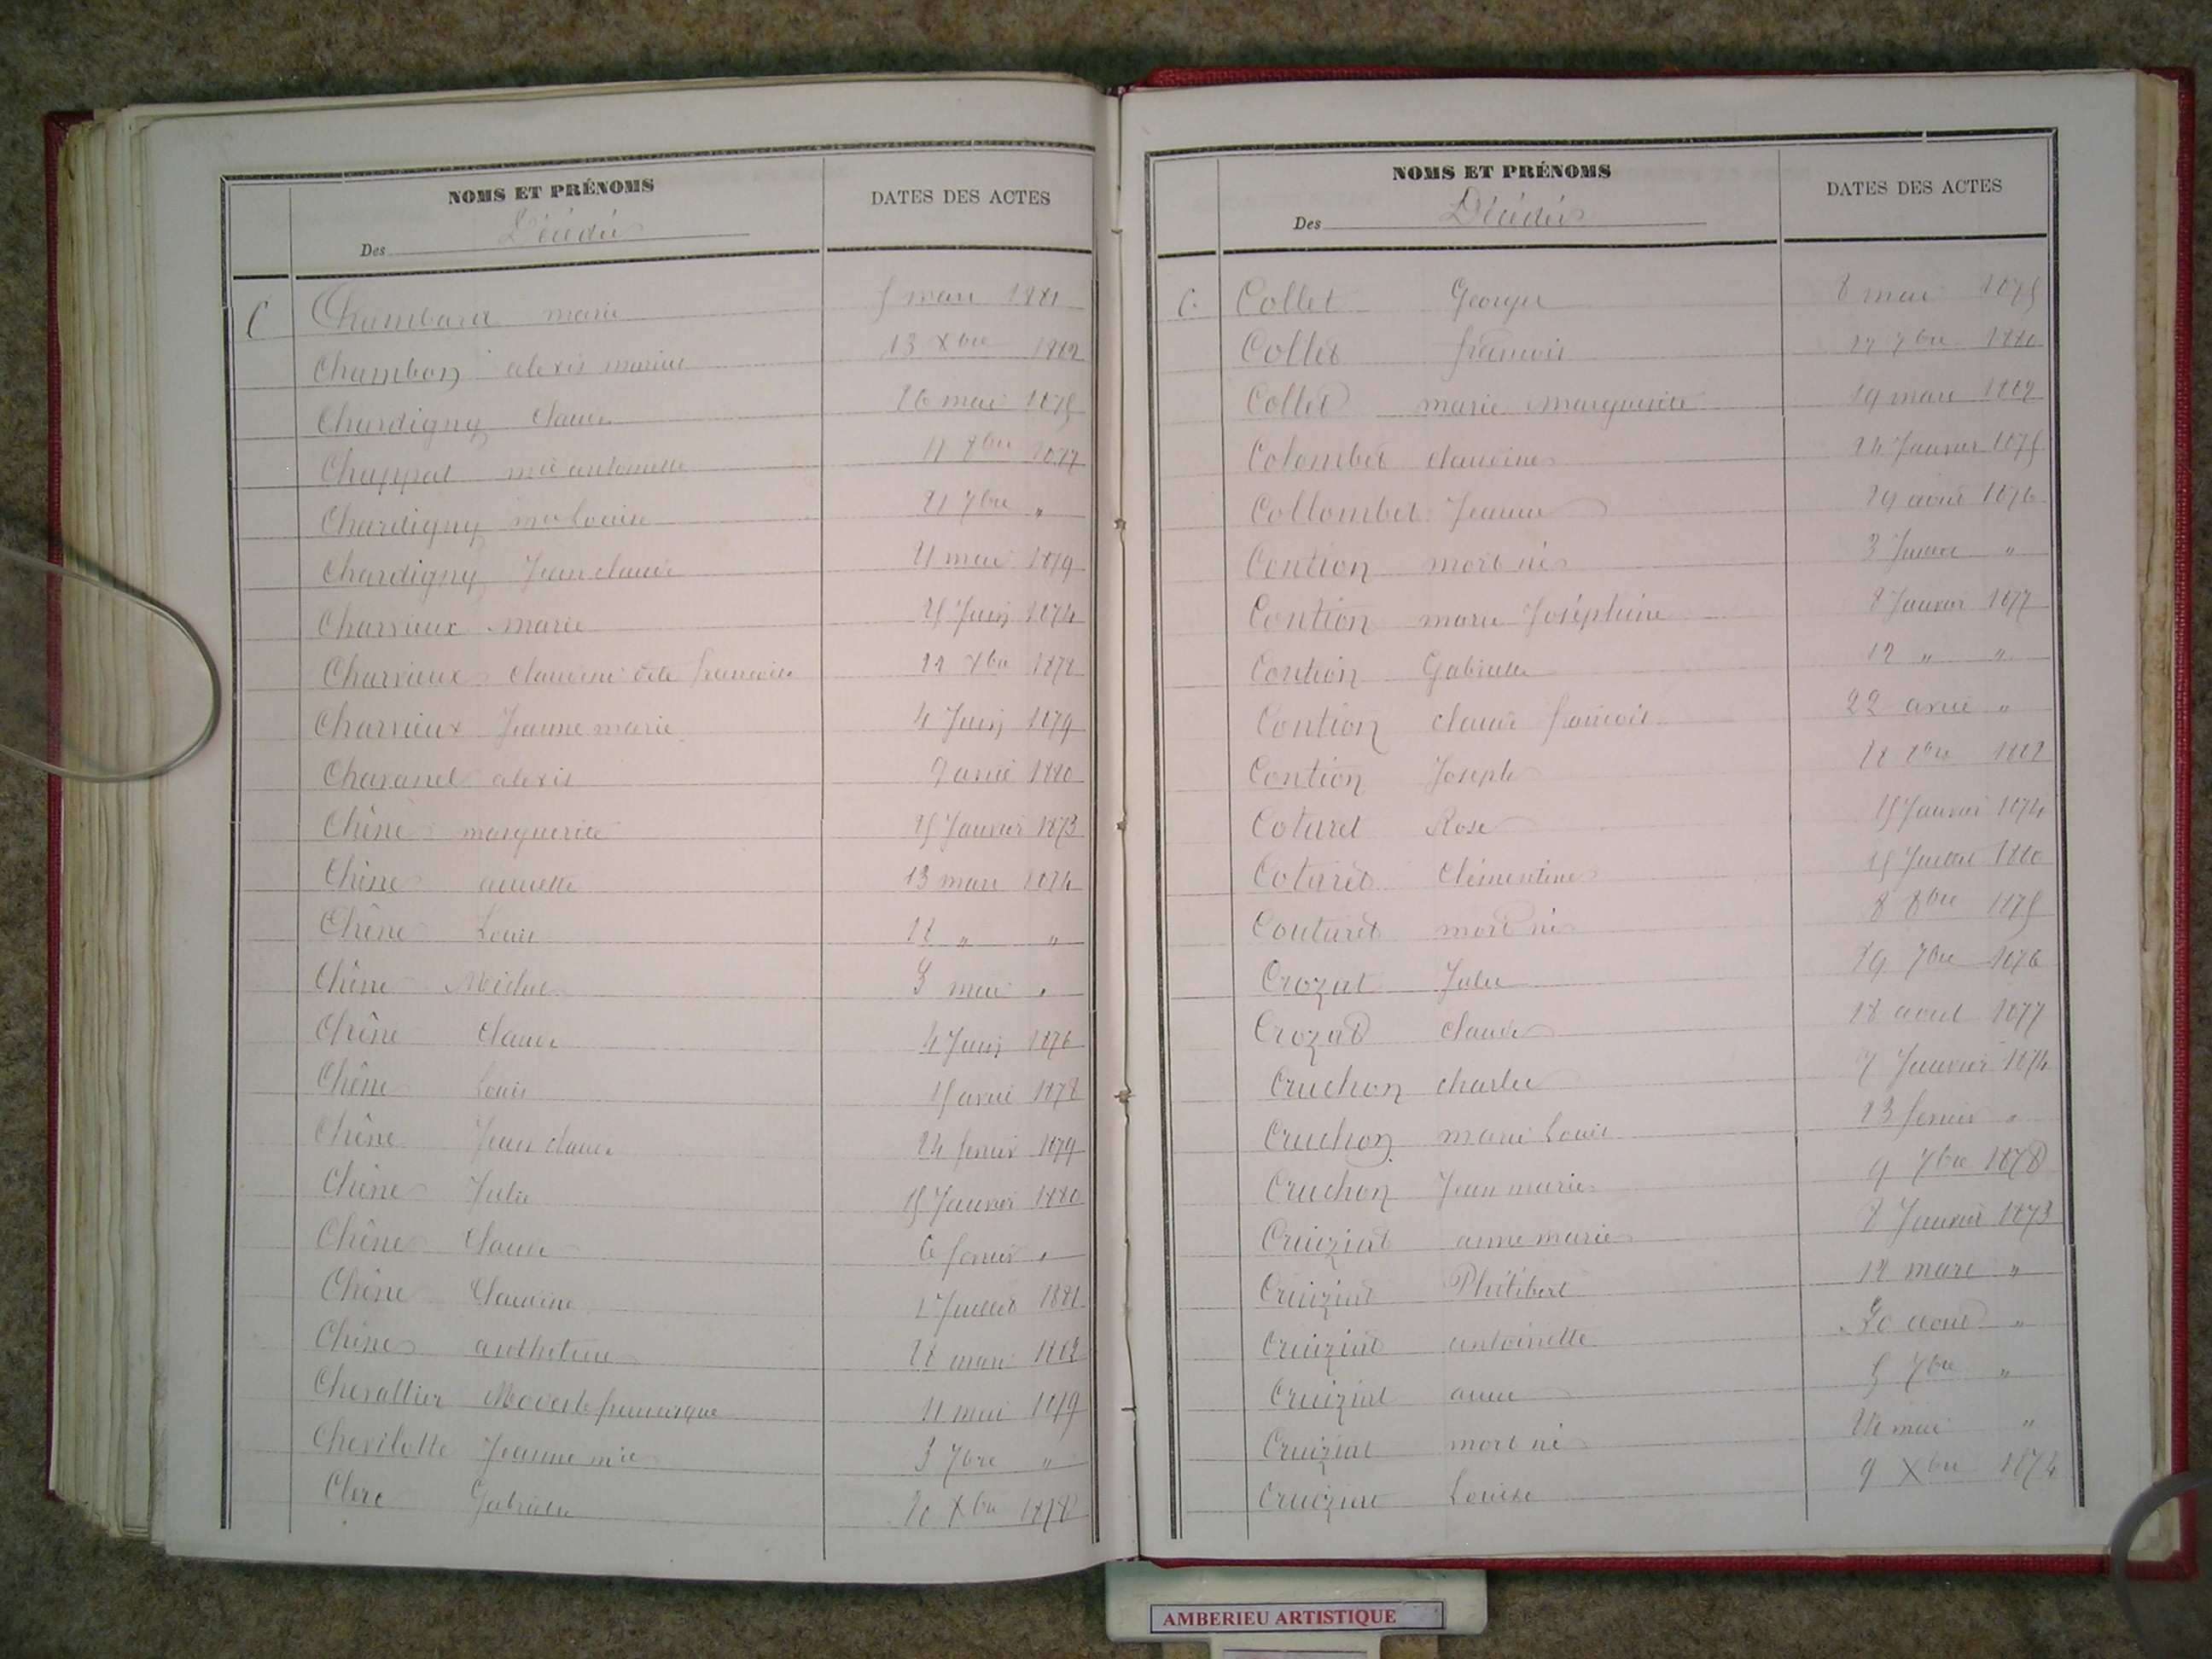 NOMS ET PRÉNOMS
DATES DES ACTES
Des Décédés
C Chambard marie 5 mars 1881
Chambon alexis marius 13 Xbre 1882
Chardigny Claude 26 mai 1875
Chappat mie antoinette 11 1877
Chardigny mie louise 21 7bre "
Chardigny Jean claude 21 mai 1879
Charvieux Marie 25 Juin 1874
Charvieux Claudine dite francoise 22 Xbre 1878
Charvieux Jeanne marie 4 Juin 1879
Chavanel alexis avril 1880
Chêne marguerite 25 Janvier 1873
Chêne annette 13 mars 1874
Chêne Louis 18 " "
Chêne Michel 3 mai "
Chêne Claude 4 Juin 1876
Chêne Louis 15 avril 1878
Chêne Jean claude 24 fevrier 1879
Chêne Julie 15 Janvier 1880
Chêne Claude 6 fevrier "
Chêne Claudine Juillet 1881
Chêne anthelme 28 mars 1882
Chevallier Modeste 11 mai 1879
Chevilotte Jeanne mie 3 7bre "
Clerc Gabrielle 20 Xbre 1878
NOMS ET PRÉNOMS
DATES DES ACTES
Des Décédés
C. Collet Georges 8 mai 1875
Collet francois 7bre 1880
Collet marie Marguerite 19 mars 1882
Colombet claudine 24 Janvier 1875
Collombet Jeanne 29 aout 1876
Contion mort né 3 Juillet "
Contion marie Joséphine 8 Janvier 1877
Contion Gabrielle 12 " "
Contion claude francois 22 avril "
Contion Joseph 1882
Cotaret Rose 15 Janvier 1874
Cotaret Clémentine 15 Juillet 1880
Coutaret mort né 8 8bre 1875
Crozat Julie 29 7bre 1876
Crozat claude 18 aout 1877
Cruchon charles 7 Janvier 1874
Cruchon marie Louis 23 fevrier "
Cruchon Jean marie 9 7bre 1878
Cruiziat anne marie 8 Janvier 1873
Cruiziat Philibert 12 mars "
Cruiziat antoinette 30 aout "
Cruiziat anne 5 7bre "
Cruiziat mort né mai "
Cruiziat Louise 9 Xbre 1874
AMBERIEU ARTISTIQUE